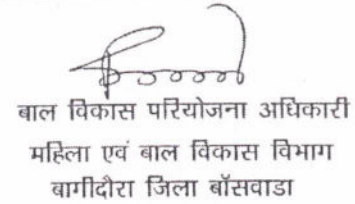 बाल विकास परियोजना अधिकारी
महिला एवं बाल विकास विभाग
बागीदौरा जिला बॉसवाडा